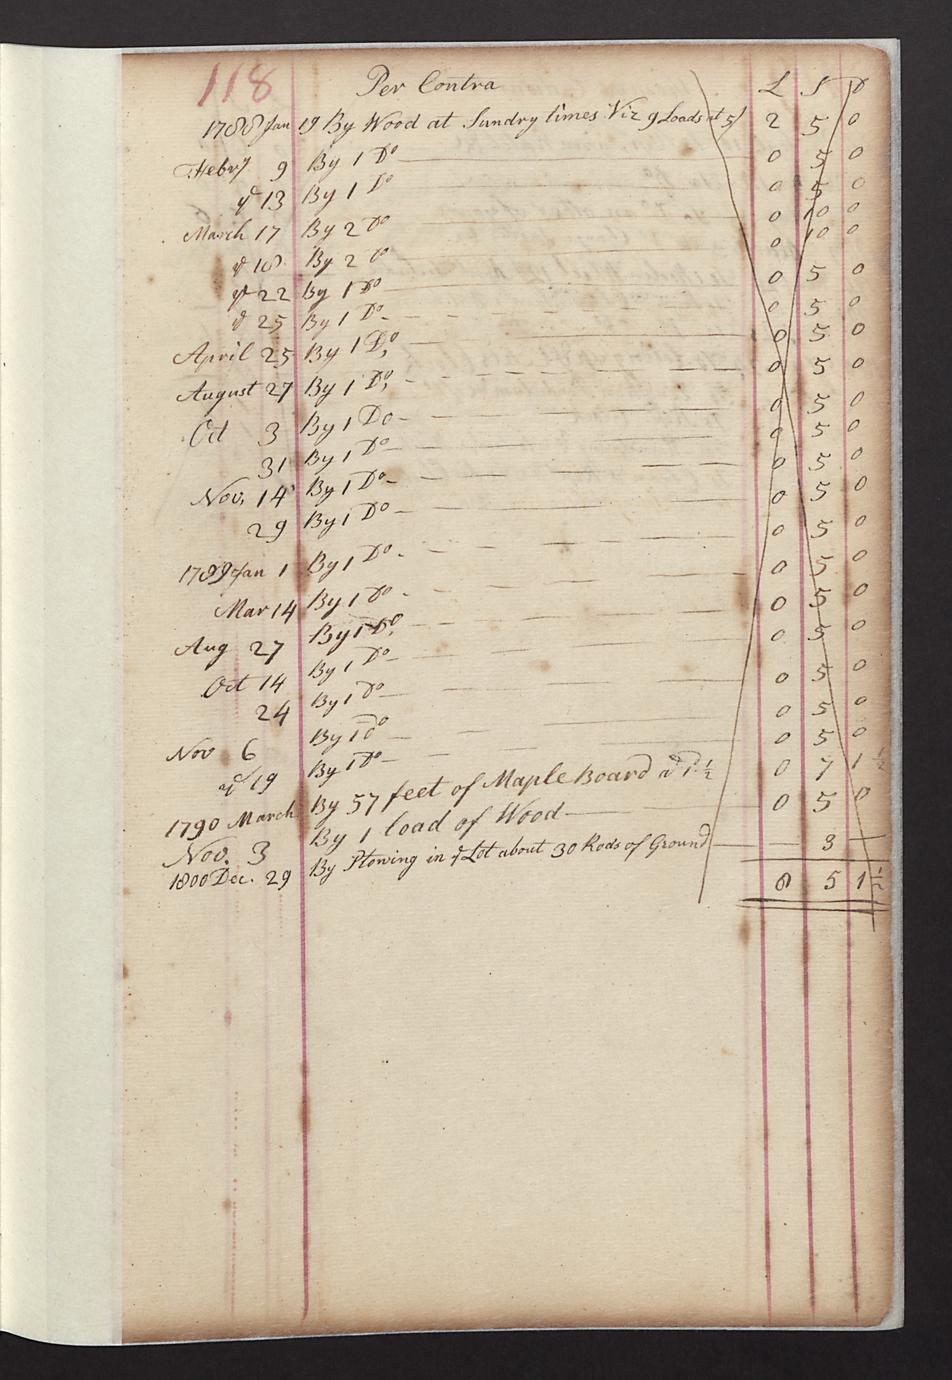 118 Per Contra L S D
1788 Jan 19 By Wood at Sundry times Viz 9 Loads at 5/ 2 5 0
Febry 9 By 1 Do 0 5 0
ye 13 By 1 Do 0 5 0
March 17 By 2 Do 0 10 0
ye 18 By 2 Do 0 10 0
ye 22 By 1 Do 0 5 0
ye 25 By 1 Do 0 5 0
April 25 By 1 Do 0 5 0
August 27 By 1 Do 0 5 0
Oct 3 By 1 Do 0 5 0
31 By 1 Do 0 5 0
Nov. 14 By 1 Do 0 5 0
29 By 1 Do 0 5 0
1789 Jan 1 By 1 Do 0 5 0
Mar 14 By 1 Do 0 5 0
Aug 27 By 1 Do 0 5 0
Oct 14 By 1 Do 0 5 0
24 By 1 Do 0 5 0
Nov 6 By 1 Do 0 5 0
ye 19 By 1 Do 0 5 0
1790 March By 57 feet of Maple Board a 1d 1/2 0 7 1 1/2
Nov. 3 By 1 load of Wood 0 5 0
1800 Dec. 29 By Plowing in ye Lot about 30 Rods of Ground — 3 —
8 5 1 1/2